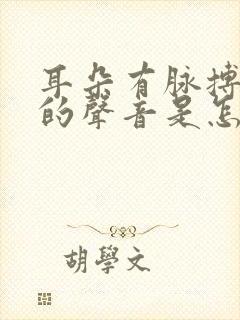 耳朵有脉搏
的聲音是怎
胡學文